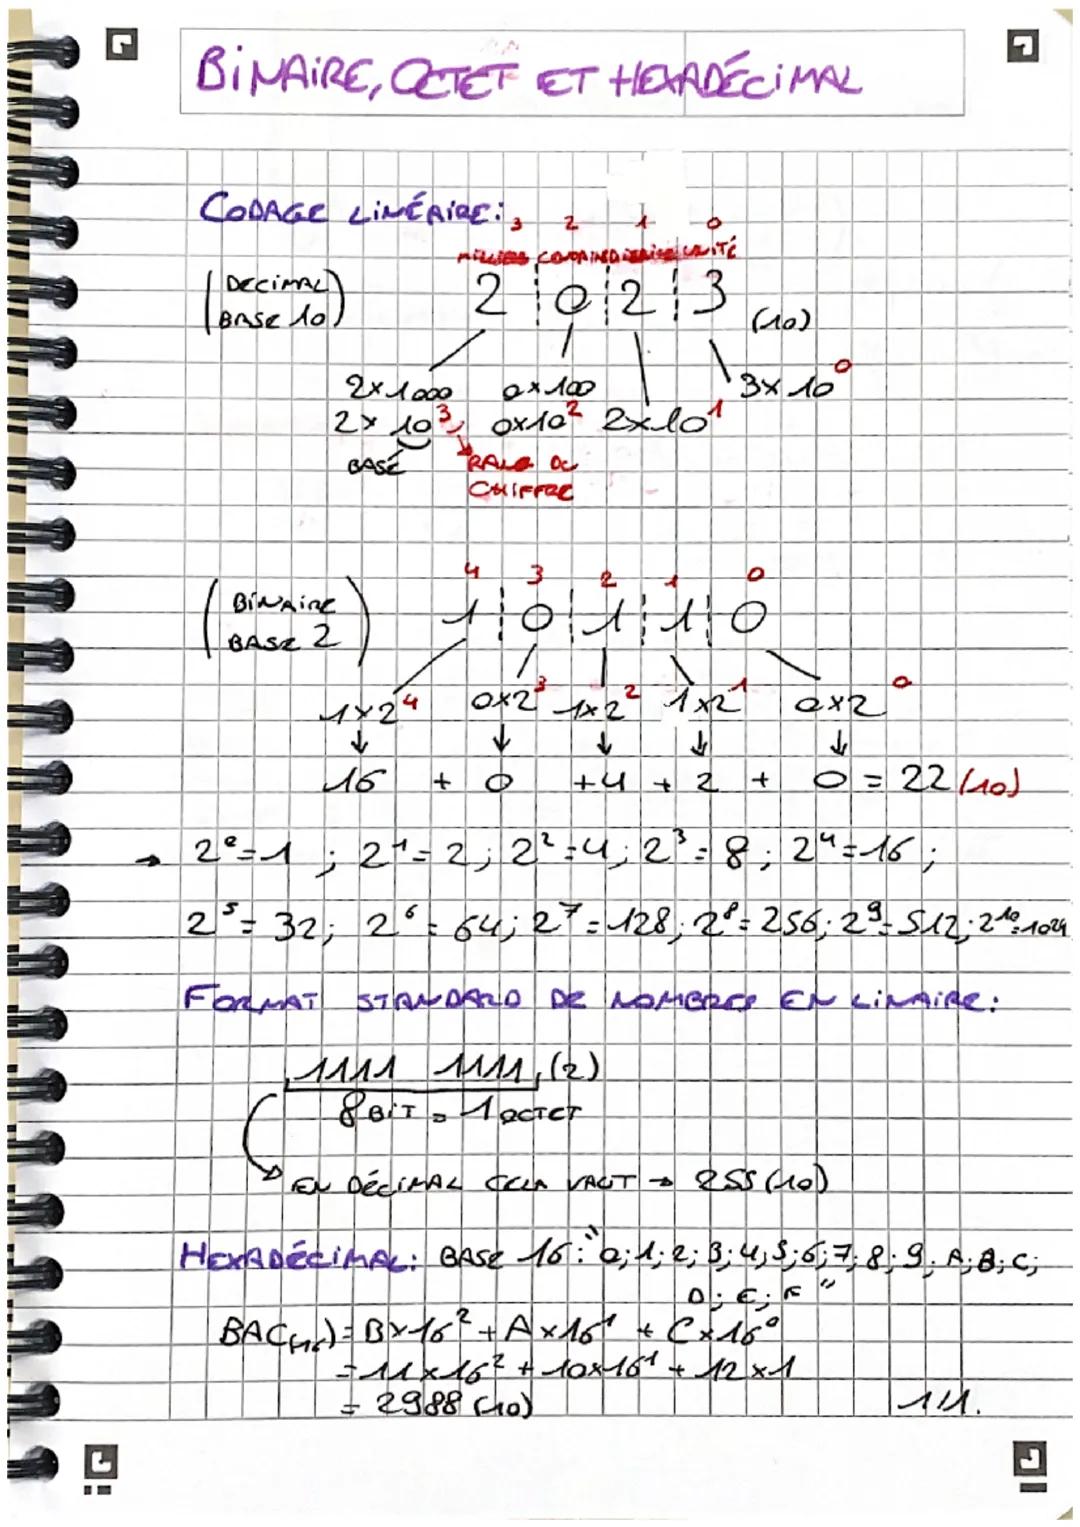 BINAIRE, OCTET ET HEXADÉCIMAL
CODAGE LINÉAIRE:
3 2 1 0
MILLIERS CENTAINE DIZAINE UNITÉ
(DECIMAL BASE 10) 2 0 2 3 (10)
2×1000 0×100 3×10⁰
2×10³ 0×10² 2×10¹
BASE RANG DU
CHIFFRE
4 3 2 1 0
(BINAIRE BASE 2) 1 0 1 1 0
1×2⁴ 0×2³ 1×2² 1×2¹ 0×2⁰
↓ ↓ ↓ ↓ ↓
16 + 0 +4 + 2 + 0 = 22 (10)
→ 2⁰=1 ; 2¹=2; 2²=4; 2³=8; 2⁴=16;
2⁵=32; 2⁶=64; 2⁷=128; 2⁸=256; 2⁹=512; 2¹⁰=1024
FORMAT STANDARD DE NOMBRES EN LINAIRE:
1111 1111 (2)
8 BIT = 1 OCTET
EN DÉCIMAL CELA VAUT → 255 (10)
HEXADÉCIMAL: BASE 16: "0; 1; 2; 3; 4; 5; 6; 7; 8; 9; A; B; C;
D; E; F"
BAC(16) = B×16² + A×16¹ + C×16⁰
= 11×16² + 10×16¹ + 12×1
= 2988 (10)
1/1.